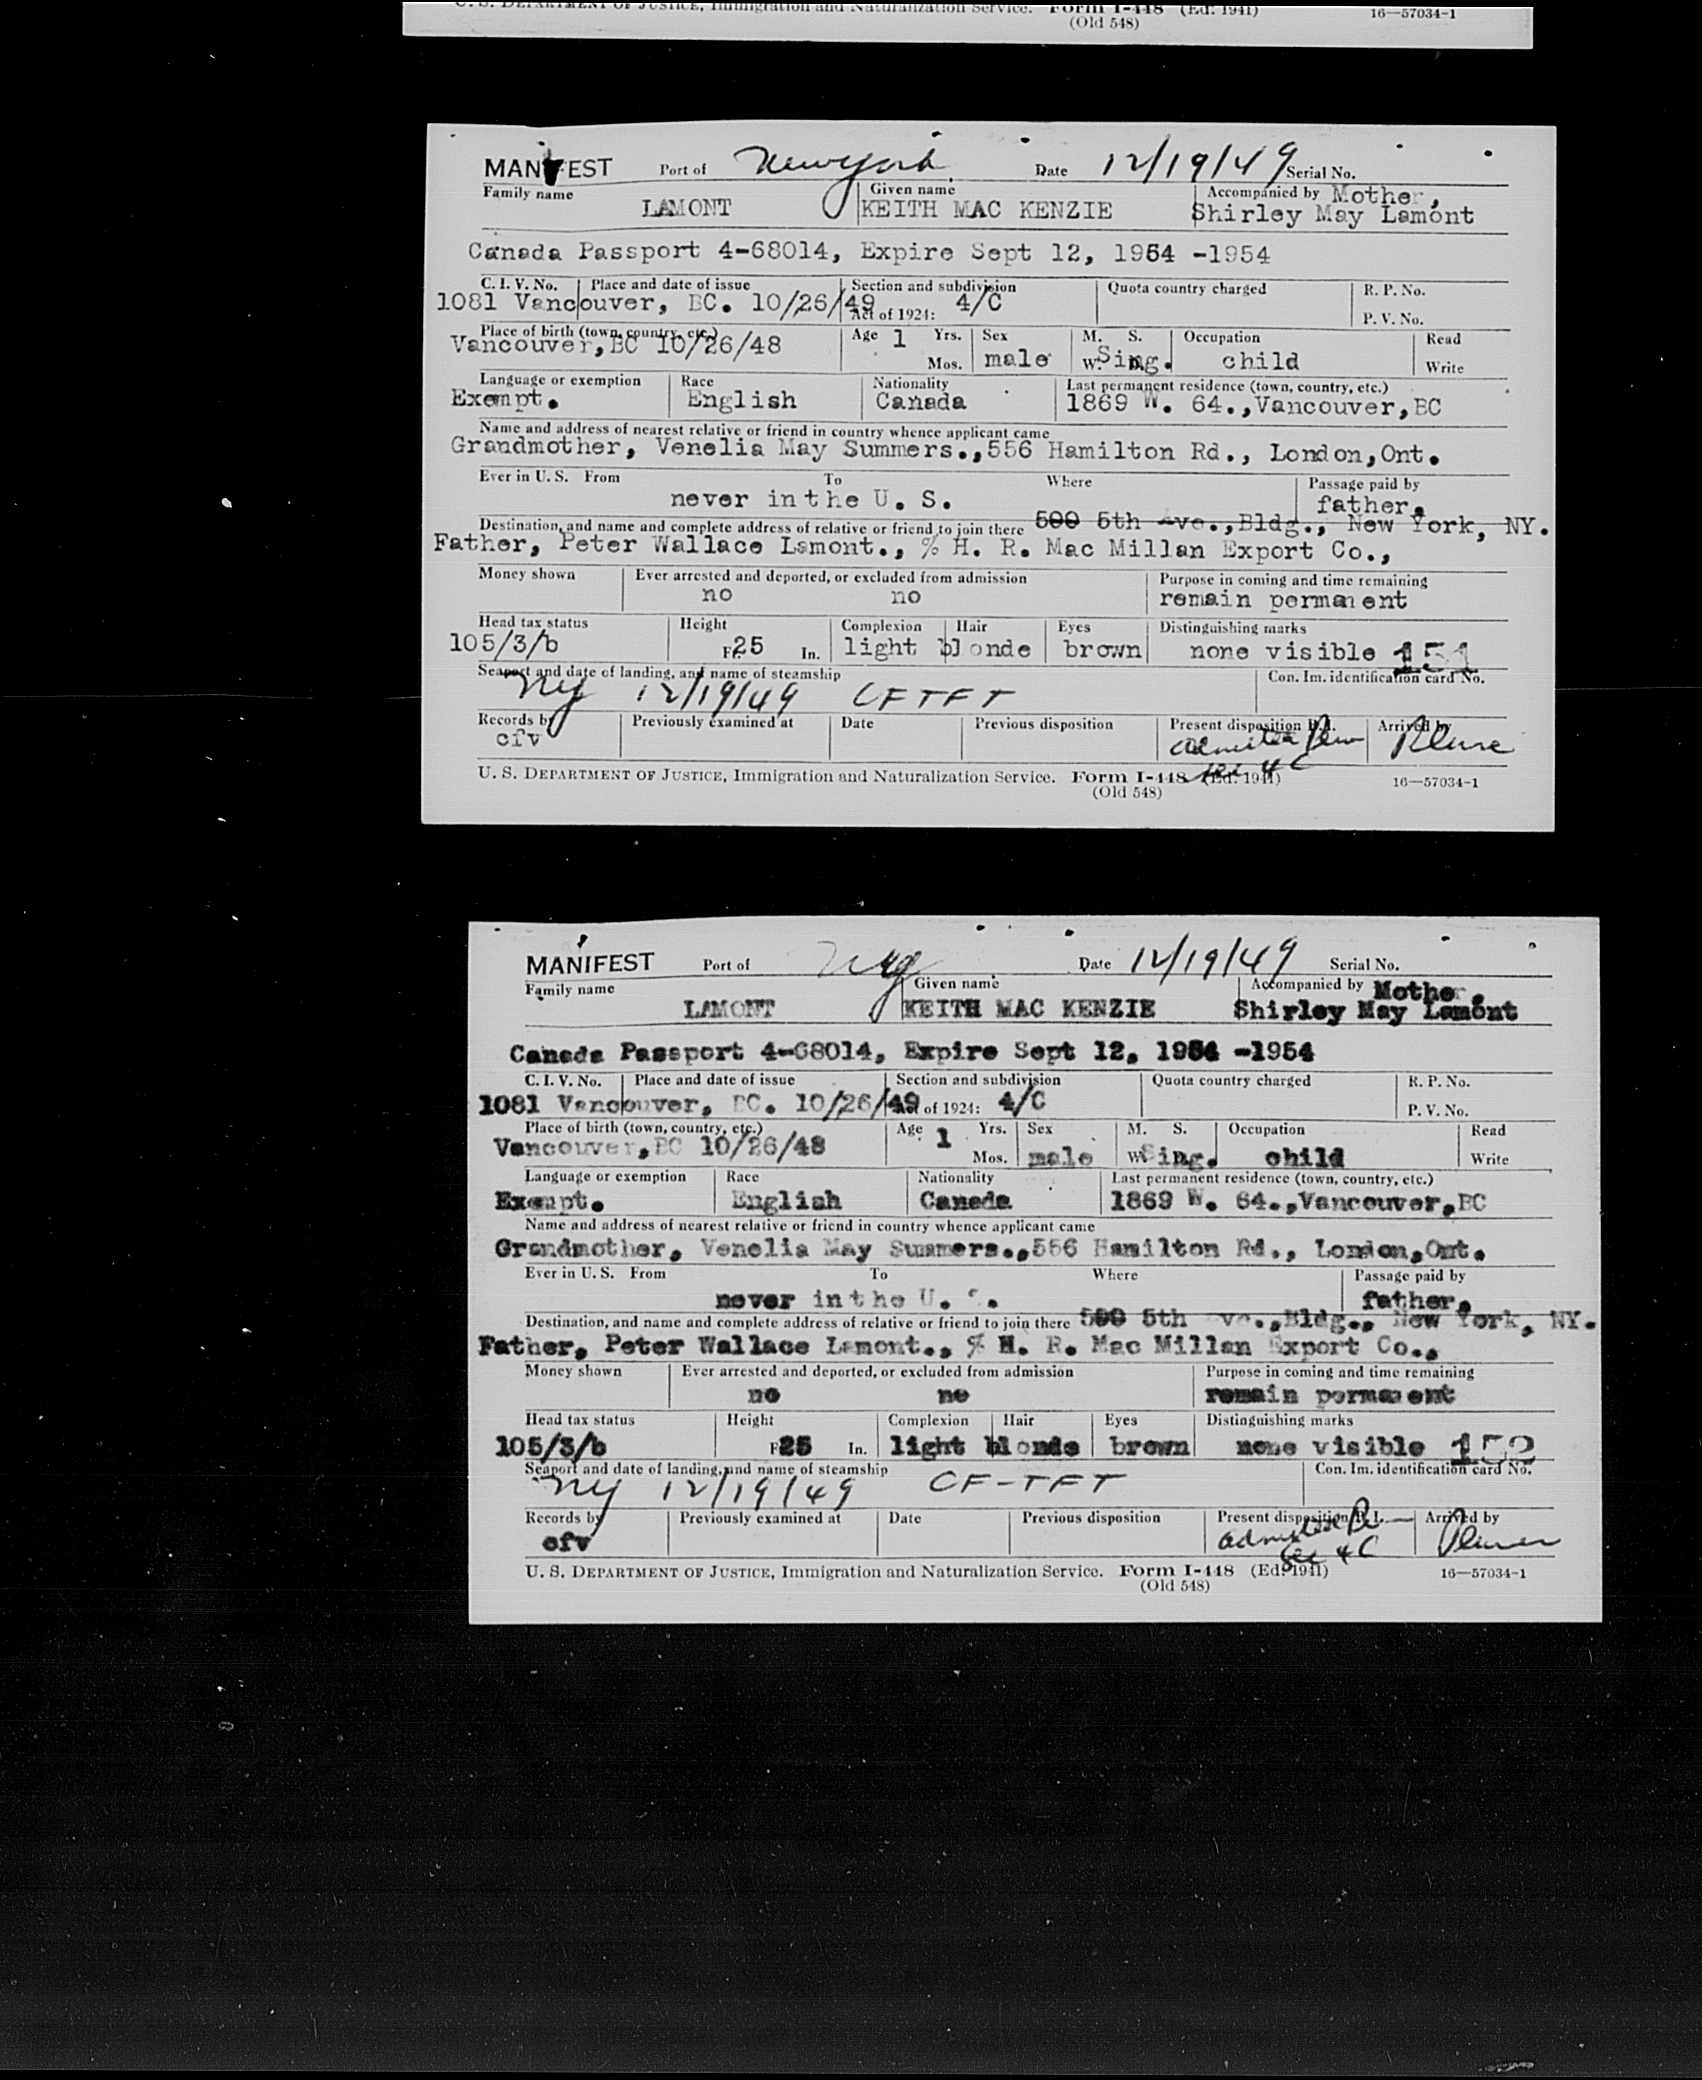 U. S. DEPARTMENT OF JUSTICE, Immigration and Naturalization Service. Form I-448 (Ed. 1941) 16—57034-1
(Old 548)
MANIFEST Port of New York Date 12/19/49 Serial No.
Family name Given name Accompanied by Mother,
LAMONT KEITH MAC KENZIE Shirley May Lamont
Canada Passport 4-68014, Expire Sept 12, 1954 -1954
C. I. V. No. Place and date of issue Section and subdivision Quota country charged R. P. No.
1081 Vancouver, BC. 10/26/49 Act of 1924: 4/C P. V. No.
Place of birth (town, country, etc.) Age 1 Yrs. Sex M. S. Occupation Read
Vancouver, BC 10/26/48 Mos. male W. Sing. child Write
Language or exemption Race Nationality Last permanent residence (town, country, etc.)
Exempt. English Canada 1869 W. 64.,Vancouver,BC
Name and address of nearest relative or friend in country whence applicant came
Grandmother, Venelia May Summers.,556 Hamilton Rd., London,Ont.
Ever in U. S. From To Where Passage paid by
never in the U. S. father.
Destination, and name and complete address of relative or friend to join there 500 5th Ave.,Bldg., New York, NY.
Father, Peter Wallace Lamont., % H. R. Mac Millan Export Co.,
Money shown Ever arrested and deported, or excluded from admission Purpose in coming and time remaining
no no remain permanent
Head tax status Height Complexion Hair Eyes Distinguishing marks
105/3/b Ft. 25 In. light blonde brown none visible 151
Seaport and date of landing, and name of steamship Con. Im. identification card No.
NY 12/19/49 CFTFT
Records by Previously examined at Date Previous disposition Present disposition B.I. Arrived by
cfv admitted Perm
Sec 4C
U. S. DEPARTMENT OF JUSTICE, Immigration and Naturalization Service. Form I-448 (Ed. 1941) 16—57034-1
(Old 548)
MANIFEST Port of NY Date 12/19/49 Serial No.
Family name Given name Accompanied by Mother,
LAMONT KEITH MAC KENZIE Shirley May Lamont
Canada Passport 4-68014, Expire Sept 12, 1954 -1954
C. I. V. No. Place and date of issue Section and subdivision Quota country charged R. P. No.
1081 Vancouver, BC. 10/26/49 Act of 1924: 4/C P. V. No.
Place of birth (town, country, etc.) Age 1 Yrs. Sex M. S. Occupation Read
Vancouver,BC 10/26/48 Mos. male W. Sing. child Write
Language or exemption Race Nationality Last permanent residence (town, country, etc.)
Exempt. English Canada 1869 W. 64.,Vancouver,BC
Name and address of nearest relative or friend in country whence applicant came
Grandmother, Venelia May Summers.,556 Hamilton Rd., London,Ont.
Ever in U. S. From To Where Passage paid by
never in the U. S. father.
Destination, and name and complete address of relative or friend to join there 500 5th Ave.,Bldg., New York, NY.
Father, Peter Wallace Lamont., % H. R. Mac Millan Export Co.,
Money shown Ever arrested and deported, or excluded from admission Purpose in coming and time remaining
no no remain permanent
Head tax status Height Complexion Hair Eyes Distinguishing marks
105/3/b Ft. 25 In. light blonde brown none visible 152
Seaport and date of landing, and name of steamship Con. Im. identification card No.
NY 12/19/49 CF-TFT
Records by Previously examined at Date Previous disposition Present disposition B.I. Arrived by
cfv admitted
Sec 4C
U. S. DEPARTMENT OF JUSTICE, Immigration and Naturalization Service. Form I-448 (Ed. 1941) 16—57034-1
(Old 548)